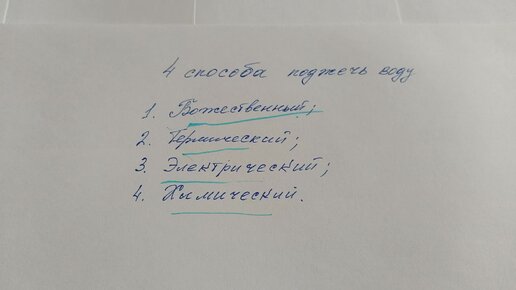 4 способа поджечь воду
1. Божественный;
2. Термический;
3. Электрический;
4. Химический.